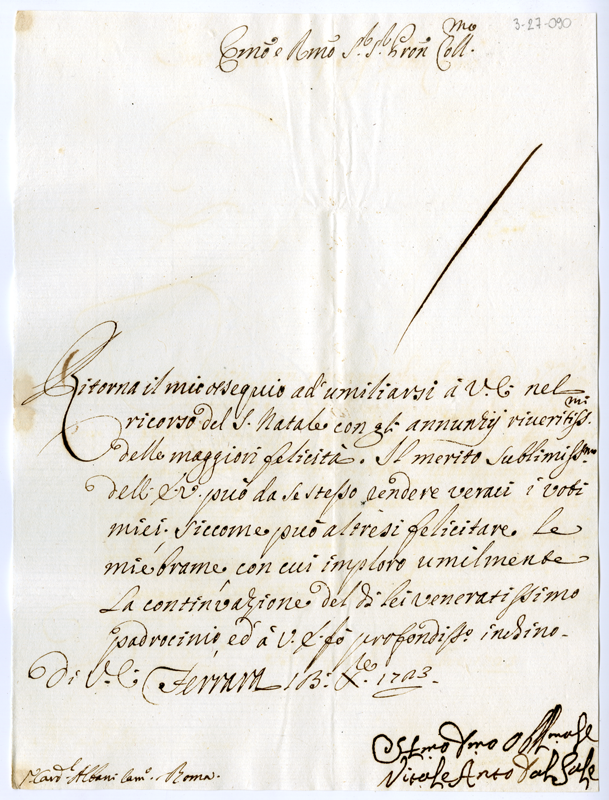 3-27-090
Emo e Rmo Sr. Sr. Pron Collmo.
Ritorna il mio ossequio ad umiliarsi à V. E. nel
ricorso del S. Natale con gli annunzij riveritissmi
delle maggiori felicità. Il merito sublimissmo
dell' E V. può da se stesso rendere veraci i voti
miei. Siccome può altresi felicitare le
mie brame con cui imploro umilmente
la continuazione del di lei veneratissimo
padrocinio ed à V. E. fò profondisso inchino.
Di V. E. Ferrara 10bre
Vitale Anto dal Sale
Card. Albani Cam. Roma.